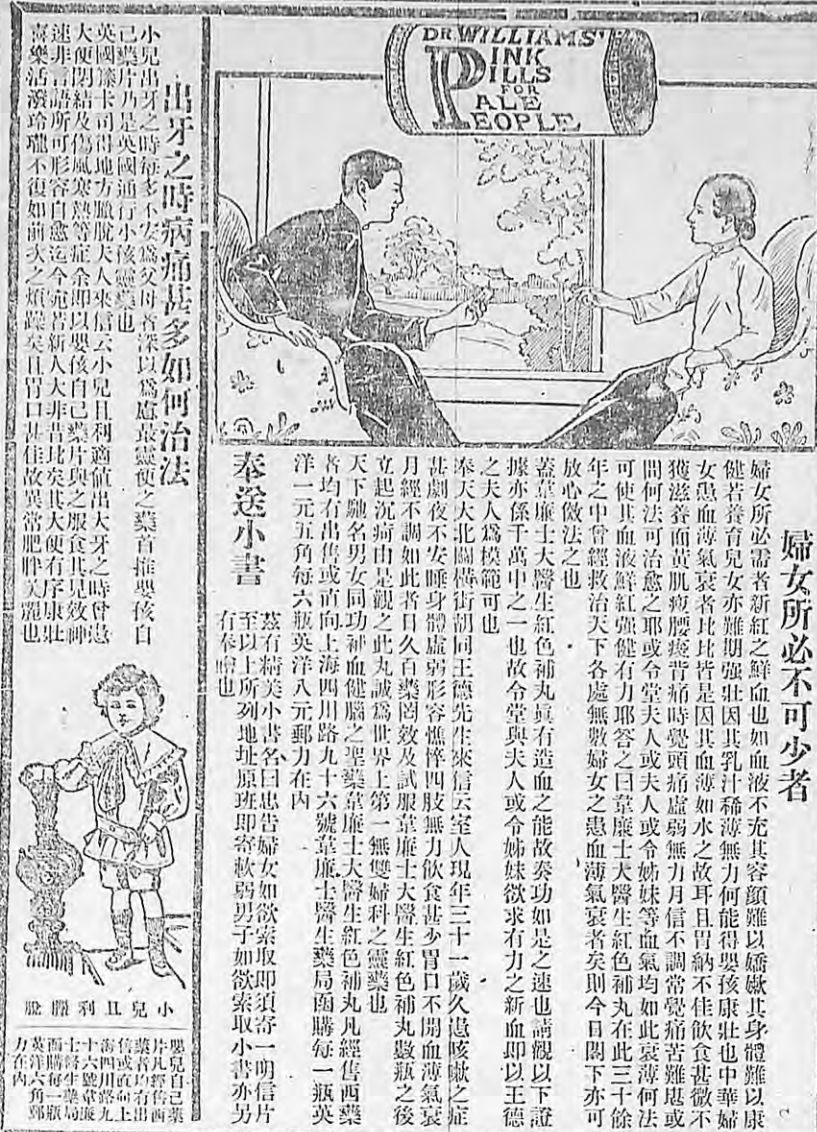 DR. WILLIAMS'
PINK
PILLS
FOR
PALE
PEOPLE
婦女所必不可少者
婦女所必需者新紅之鮮血也如血液不充其容顏難以嬌嫩其身體難以康
健若養育兒女亦難期強壯因其乳汁稀薄無力何能得嬰孩康壯也中華婦
女患血薄氣衰者比比皆是因其血薄如水之故耳且胃納不佳飲食甚微不
獲滋養面黃肌瘦腰痠背痛時覺頭痛虛弱無力月信不調常覺痛苦難堪或
問何法可治愈之耶或令堂夫人或夫人或令姊妹等血氣均如此衰薄何法
可使其血液鮮紅強健有力耶答之曰韋廉士大醫生紅色補丸在此三十餘
年之中曾經救治天下各處無數婦女之患血薄氣衰者矣則今日閣下亦可
放心傚法之也
蓋韋廉士大醫生紅色補丸眞有造血之能故奏功如是之速也請觀以下證
據亦係千萬中之一也故令堂與夫人或令姊妹欲求有力之新血即以王德
之夫人爲模範可也
奉天大北關橫街胡同王德先生來信云室人現年三十一歲久患咳嗽之症
甚劇夜不安睡身體虛弱形容憔悴四肢無力飲食甚少胃口不開血薄氣衰
月經不調如此者日久百藥罔效及試服韋廉士大醫生紅色補丸數瓶之後
立起沉疴由是觀之此丸誠爲世界上第一無雙婦科之靈藥也
天下馳名男女同功補血健腦之聖藥韋廉士大醫生紅色補丸凡經售西藥
者均有出售或直向上海四川路九十六號韋廉士醫生藥局函購每一瓶英
洋一元五角每六瓶英洋八元郵力在內
奉送小書
茲有精美小書名曰忠告婦女如欲索取即須寄一明信片
至以上所列地址原班即寄軟弱男子如欲索取小書亦另
有奉贈也
出牙之時病痛甚多如何治法
小兒出牙之時每多不安爲父母者深以爲慮最靈便之藥首推嬰孩自
己藥片乃是英國通行小孩靈藥也
英國籐卡司得地方臘脫夫人來信云小兒且利適值出大牙之時曾患
大便閉結及傷風寒熱等症余即以嬰孩自己藥片與之服食其見效神
速非言語所可形容自愈迄今宛若新人大非昔比矣其大便有序康壯
喜樂活潑玲瓏不復如前次之煩躁矣且胃口甚佳故異常肥胖美麗也
小兒且利臘脫
嬰兒自己藥
片凡經售西
藥者均有出
售或直向上
海四川路九
十六號韋廉
士醫生藥局
函購每一瓶
英洋六角郵
力在內